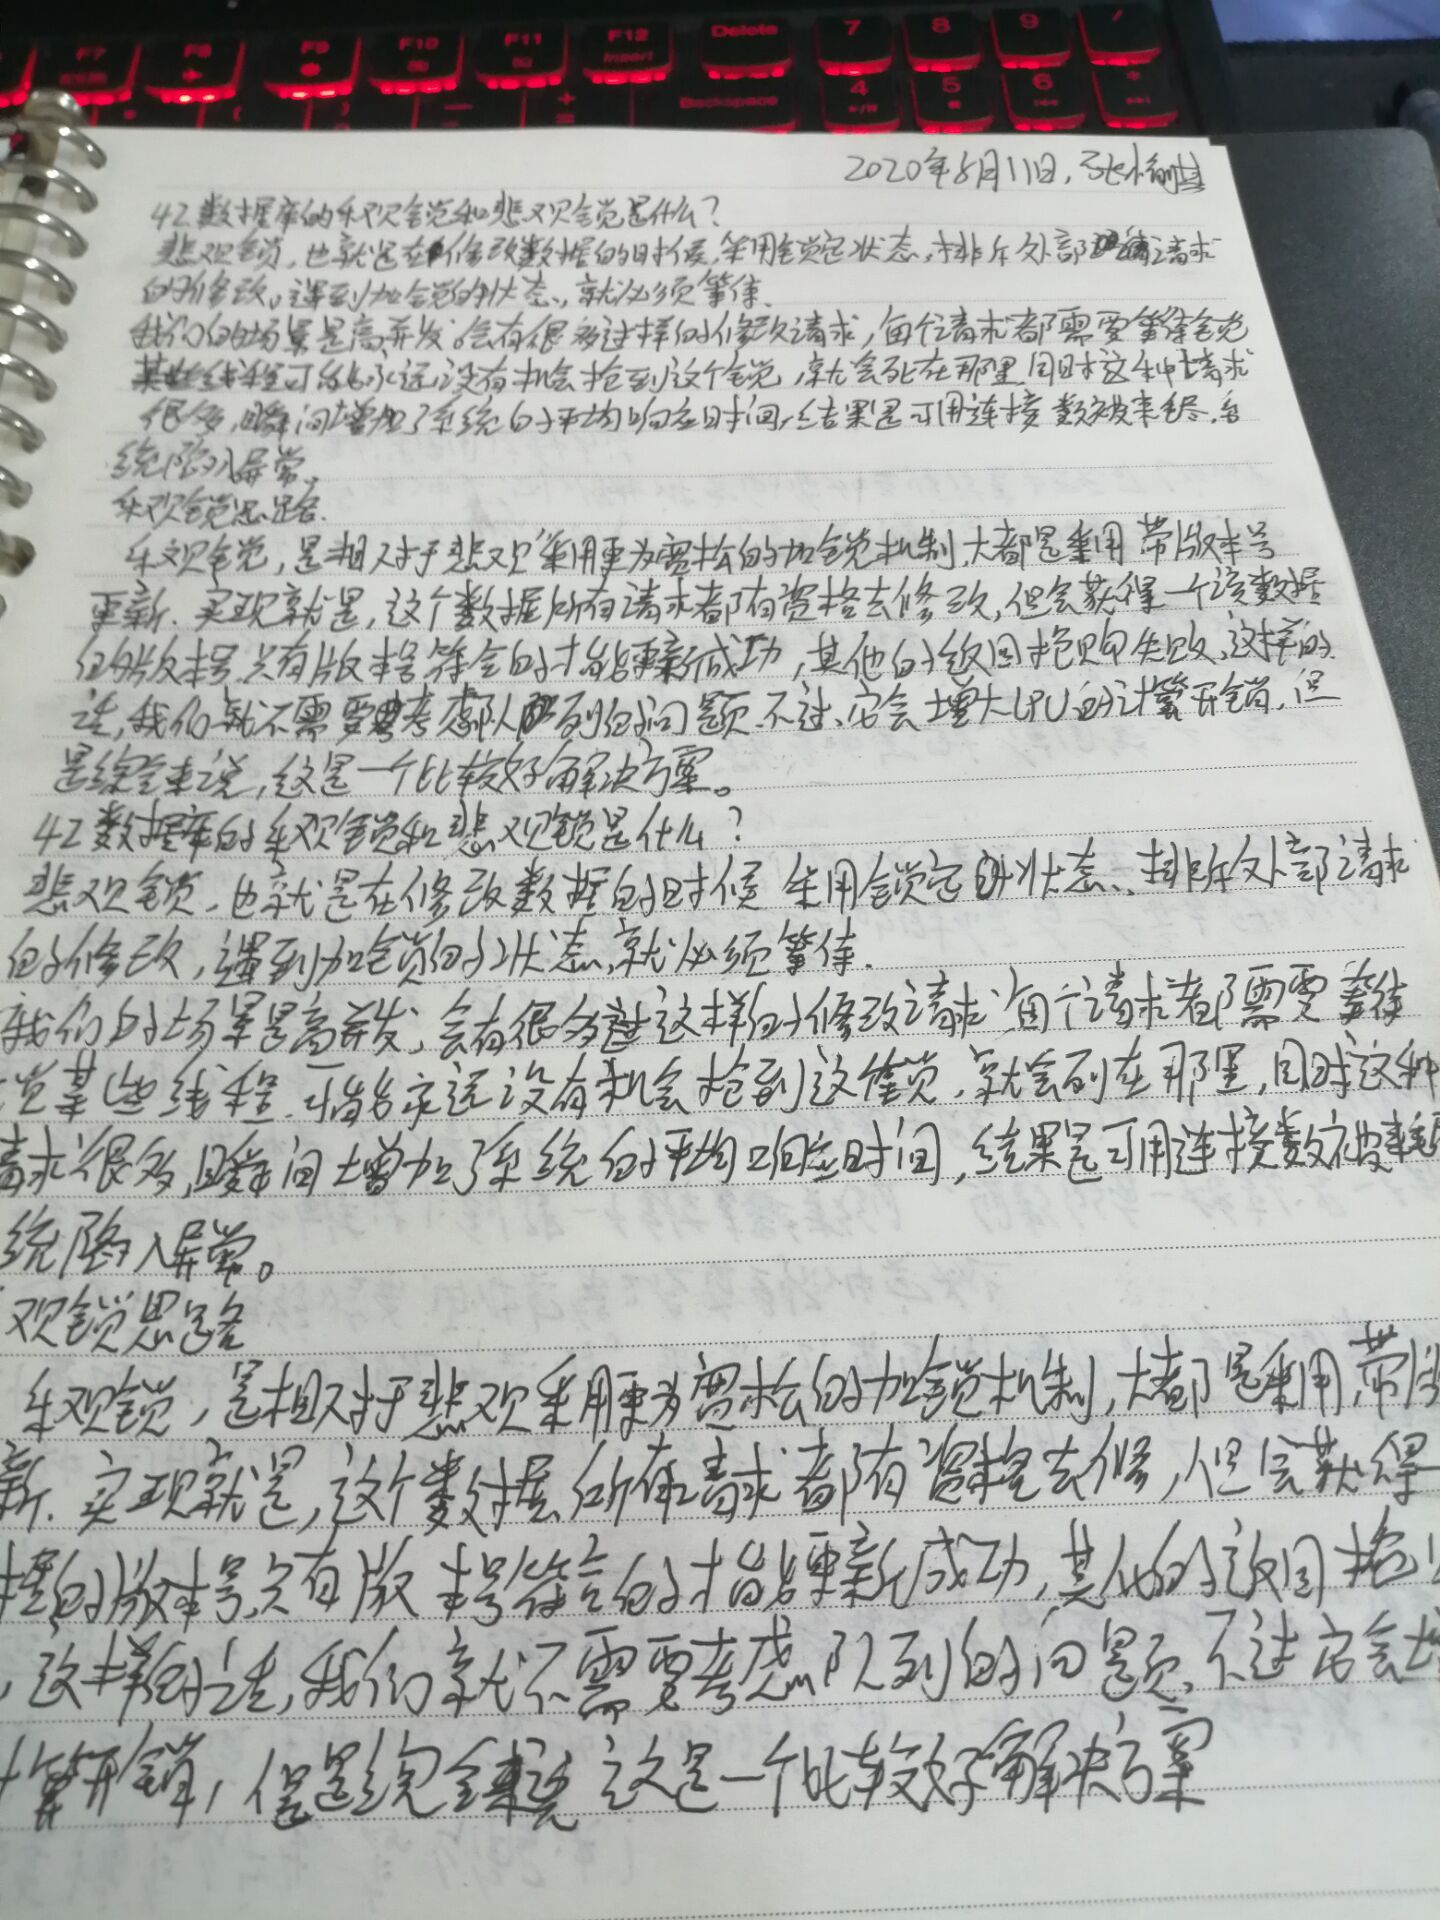 F7 F8 F9 F10 F11 F12 Delete 7 8 9 /
Insert
Backspace 4 5 6 *
2020年5月11日,
42数据库的乐观锁和悲观锁是什么?
悲观锁,也就是在修改数据的时候,采用锁定状态,排斥外部请求
的修改。遇到加锁的状态,就必须等待.
我们的场景是高并发。会有很多这样的修改请求,每个请求都需要等待锁
某些线程可能永远没有机会抢到这个锁,就会死在那里.同时这种请求
很多,瞬间增加了系统的平均响应时间,结果是可用连接数被耗尽.系
统陷入异常。
乐观锁思路.
乐观锁,是相对于悲观采用更为宽松的加锁机制,大都是采用带版本号
更新.实现就是,这个数据所有请求都有资格去修改,但会获得一个该数据
的版本号.只有版本号符合的才能更新成功,其他的返回抢购失败.这样的
话,我们就不需要考虑队列的问题.不过,它会增大CPU的计算开销,但
是综合来说,这是一个比较好解决方案。
42数据库的乐观锁和悲观锁是什么?
悲观锁,也就是在修改数据的时候采用锁定状态、排斥外部请求
的修改,遇到加锁的状态,就必须等待.
我们的场景是高并发,会有很多这样的修改请求每个请求都需要等待
锁某些线程.可能永远没有机会抢到这个锁,就会死在那里,同时这种
请求很多,瞬间增加了系统的平均响应时间,结果是可用连接数被耗
统陷入异常。
观锁思路
乐观锁,是相对于悲观采用更为宽松的加锁机制,大都是采用,带版
新.实现就是,这个数据,所有请求都有资格去修,但会获得一
据的版本号,只有版本号符合的才能更新成功,其他的返回抢
,这样的话,我们就不需要考虑队列的问题.不过它会增
计算开销,但是综合来说这是一个比较好解决方案